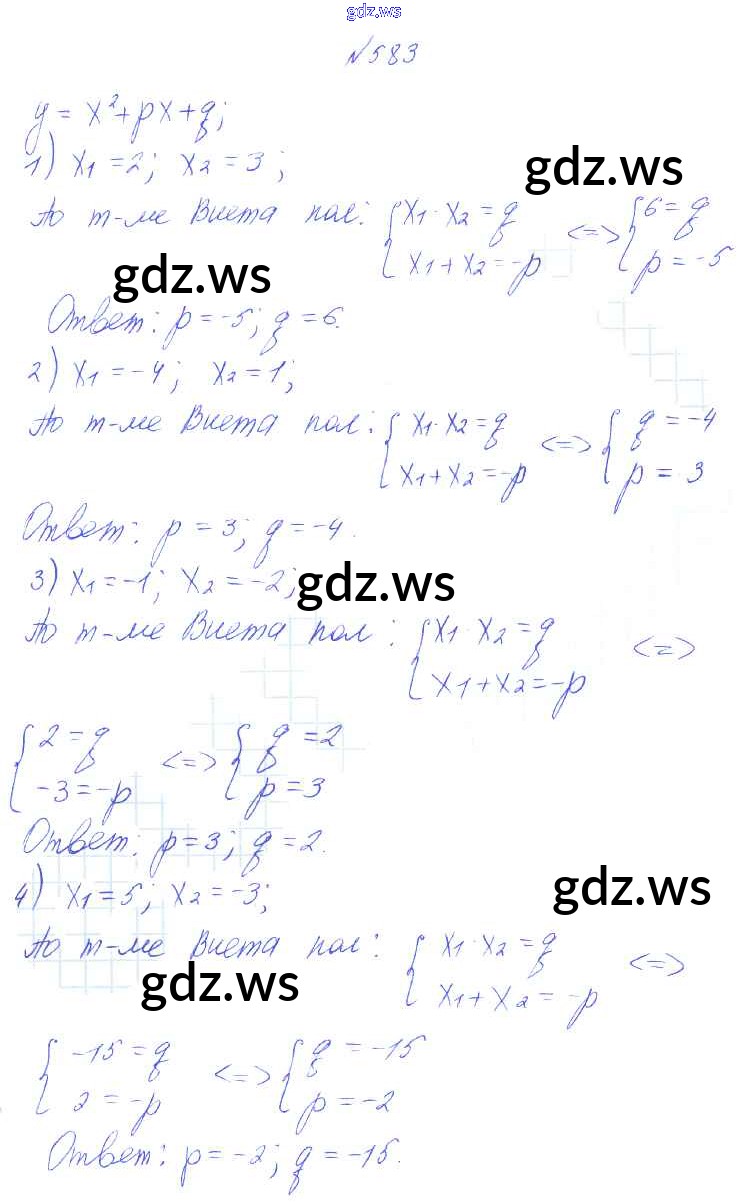 gdz.ws
№583
y = x²+px+q;
1) x₁ = 2; x₂ = 3;
gdz.ws
По т-ме Виета пол: { x₁·x₂ = q <=> { 6 = q
x₁+x₂ = -p p = -5
gdz.ws
Ответ: p = -5; q = 6.
2) x₁ = -4; x₂ = 1;
По т-ме Виета пол: { x₁·x₂ = q <=> { q = -4
x₁+x₂ = -p p = 3
Ответ: p = 3; q = -4.
3) x₁ = -1; x₂ = -2;
gdz.ws
По т-ме Виета пол: { x₁·x₂ = q <=>
x₁+x₂ = -p
{ 2 = q <=> { q = 2
-3 = -p p = 3
Ответ: p = 3; q = 2.
4) x₁ = 5; x₂ = -3;
gdz.ws
По т-ме Виета пол: { x₁·x₂ = q <=>
x₁+x₂ = -p
gdz.ws
{ -15 = q <=> { q = -15
2 = -p p = -2
Ответ: p = -2; q = -15.